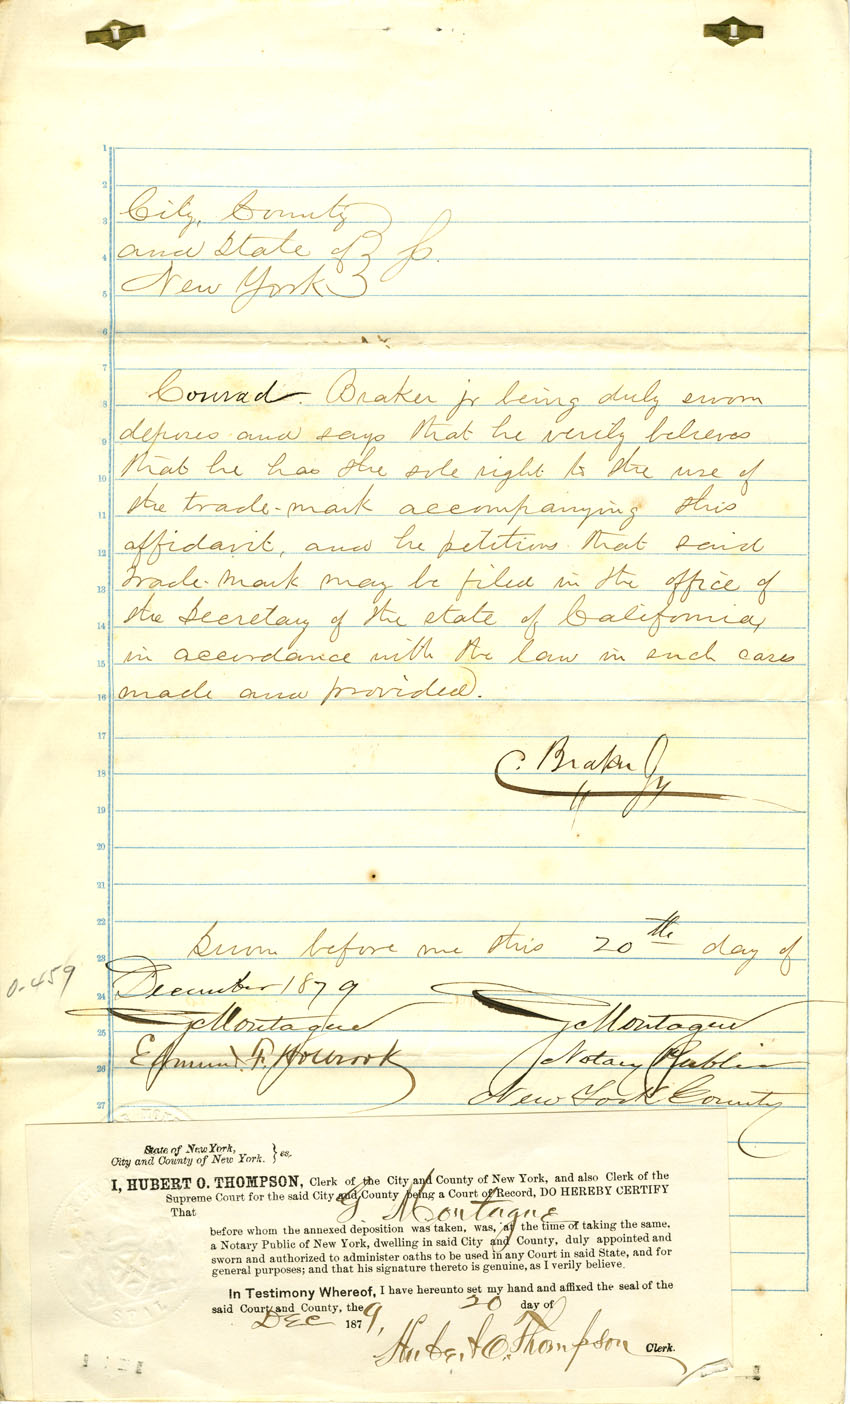 City, County
and State of
New York
Conrad Braker jr being duly sworn
deposes and says that he verily believes
that he has the sole right to the use of
the trade-mark accompanying this
affidavit, and he petitions that said
trade-mark may be filed in the office of
the Secretary of the state of California,
in accordance with the law in such cases
made and provided.
C. Braker Jr
Sworn before me this 20th day of
December 1879
0-459
G Montague
Edmund F. Holbrook
G Montague
Notary Public
New York County
State of New York,
City and County of New York. } ss.
I, HUBERT O. THOMPSON, Clerk of the City and County of New York, and also Clerk of the
Supreme Court for the said City and County being a Court of Record, DO HEREBY CERTIFY
That G. Montague
before whom the annexed deposition was taken, was, at the time of taking the same,
a Notary Public of New York, dwelling in said City and County, duly appointed and
sworn and authorized to administer oaths to be used in any Court in said State, and for
general purposes; and that his signature thereto is genuine, as I verily believe.
In Testimony Whereof, I have hereunto set my hand and affixed the seal of the
said Court and County, the 20 day of
Dec 1879,
Hubert O. Thompson Clerk.
SEAL
1
2
3
4
5
6
7
8
9
10
11
12
13
14
15
16
17
18
19
20
21
22
23
24
25
26
27